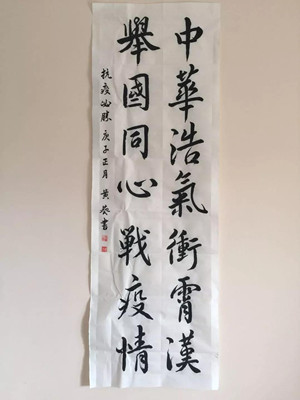 中華浩氣衝霄漢
舉國同心戰疫情
抗疫必勝 庚子正月 黄葵書